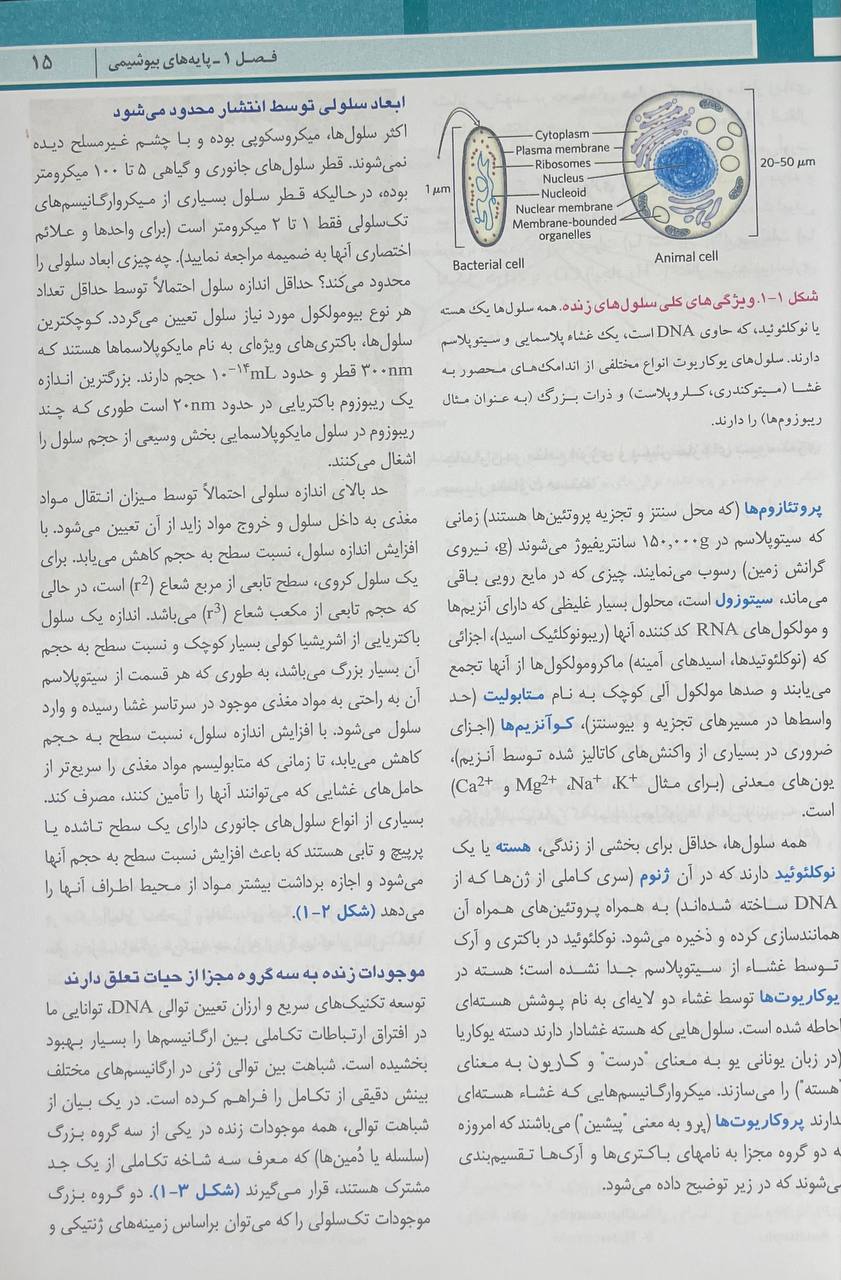 فصل ۱ ـ پایه‌های بیوشیمی
۱۵
Cytoplasm
Plasma membrane
Ribosomes
Nucleus
Nucleoid
Nuclear membrane
Membrane-bounded
organelles
1 μm
20–50 μm
Bacterial cell
Animal cell
شکل ۱-۱. ویژگی‌های کلی سلول‌های زنده. همه سلول‌ها یک هسته
یا نوکلئوئید، که حاوی DNA است، یک غشاء پلاسمایی و سیتوپلاسم
دارند. سلول‌های یوکاریوت انواع مختلفی از اندامک‌های محصور به
غشا (میتوکندری، کلروپلاست) و ذرات بزرگ (به عنوان مثال
ریبوزوم‌ها) را دارند.
پروتئازوم‌ها (که محل سنتز و تجزیه پروتئین‌ها هستند) زمانی
که سیتوپلاسم در ۱۵۰,۰۰۰g سانتریفیوژ می‌شوند (g، نیروی
گرانش زمین) رسوب می‌نمایند. چیزی که در مایع رویی باقی
می‌ماند، سیتوزول است، محلول بسیار غلیظی که دارای آنزیم‌ها
و مولکول‌های RNA کد کننده آنها (ریبونوکلئیک اسید)، اجزائی
که (نوکلئوتیدها، اسیدهای آمینه) ماکرومولکول‌ها از آنها تجمع
می‌یابند و صدها مولکول آلی کوچک به نام متابولیت (حد
واسط‌ها در مسیرهای تجزیه و بیوسنتز)، کوآنزیم‌ها (اجزای
ضروری در بسیاری از واکنش‌های کاتالیز شده توسط آنزیم)،
یون‌های معدنی (برای مثال K⁺، Na⁺، Mg²⁺ و Ca²⁺)
است.
همه سلول‌ها، حداقل برای بخشی از زندگی، هسته یا یک
نوکلئوئید دارند که در آن ژنوم (سری کاملی از ژن‌ها که از
DNA ساخته شده‌اند) به همراه پروتئین‌های همراه آن
همانندسازی کرده و ذخیره می‌شود. نوکلئوئید در باکتری و آرک
توسط غشاء از سیتوپلاسم جدا نشده است؛ هسته در
یوکاریوت‌ها توسط غشاء دو لایه‌ای به نام پوشش هسته‌ای
احاطه شده است. سلول‌هایی که هسته غشادار دارند دسته یوکاریا
(در زبان یونانی یو به معنای "درست" و کاریون به معنای
"هسته") را می‌سازند. میکروارگانیسم‌هایی که غشاء هسته‌ای
ندارند پروکاریوت‌ها (پرو به معنی "پیشین") می‌باشند که امروزه
به دو گروه مجزا به نامهای باکتری‌ها و آرک‌ها تقسیم‌بندی
می‌شوند که در زیر توضیح داده می‌شود.
ابعاد سلولی توسط انتشار محدود می‌شود
اکثر سلول‌ها، میکروسکوپی بوده و با چشم غیرمسلح دیده
نمی‌شوند. قطر سلول‌های جانوری و گیاهی ۵ تا ۱۰۰ میکرومتر
بوده، در حالیکه قطر سلول بسیاری از میکروارگانیسم‌های
تک‌سلولی فقط ۱ تا ۲ میکرومتر است (برای واحدها و علائم
اختصاری آنها به ضمیمه مراجعه نمایید). چه چیزی ابعاد سلولی را
محدود می‌کند؟ حداقل اندازه سلول احتمالاً توسط حداقل تعداد
هر نوع بیومولکول مورد نیاز سلول تعیین می‌گردد. کوچکترین
سلول‌ها، باکتری‌های ویژه‌ای به نام مایکوپلاسماها هستند که
۳۰۰nm قطر و حدود ۱۰⁻¹⁴mL حجم دارند. بزرگترین اندازه
یک ریبوزوم باکتریایی در حدود ۲۰nm است طوری که چند
ریبوزوم در سلول مایکوپلاسمایی بخش وسیعی از حجم سلول را
اشغال می‌کنند.
حد بالای اندازه سلولی احتمالاً توسط میزان انتقال مواد
مغذی به داخل سلول و خروج مواد زاید از آن تعیین می‌شود. با
افزایش اندازه سلول، نسبت سطح به حجم کاهش می‌یابد. برای
یک سلول کروی، سطح تابعی از مربع شعاع (r²) است، در حالی
که حجم تابعی از مکعب شعاع (r³) می‌باشد. اندازه یک سلول
باکتریایی از اشریشیا کولی بسیار کوچک و نسبت سطح به حجم
آن بسیار بزرگ می‌باشد، به طوری که هر قسمت از سیتوپلاسم
آن به راحتی به مواد مغذی موجود در سرتاسر غشا رسیده و وارد
سلول می‌شود. با افزایش اندازه سلول، نسبت سطح به حجم
کاهش می‌یابد، تا زمانی که متابولیسم مواد مغذی را سریع‌تر از
حامل‌های غشایی که می‌توانند آنها را تأمین کنند، مصرف کند.
بسیاری از انواع سلول‌های جانوری دارای یک سطح تاشده یا
پرپیچ و تابی هستند که باعث افزایش نسبت سطح به حجم آنها
می‌شود و اجازه برداشت بیشتر مواد از محیط اطراف آنها را
می‌دهد (شکل ۲-۱).
موجودات زنده به سه گروه مجزا از حیات تعلق دارند
توسعه تکنیک‌های سریع و ارزان تعیین توالی DNA، توانایی ما
در افتراق ارتباطات تکاملی بین ارگانیسم‌ها را بسیار بهبود
بخشیده است. شباهت بین توالی ژنی در ارگانیسم‌های مختلف
بینش دقیقی از تکامل را فراهم کرده است. در یک بیان از
شباهت توالی، همه موجودات زنده در یکی از سه گروه بزرگ
(سلسله یا دُمین‌ها) که معرف سه شاخه تکاملی از یک جد
مشترک هستند، قرار می‌گیرند (شکل ۳-۱). دو گروه بزرگ
موجودات تک‌سلولی را که می‌توان براساس زمینه‌های ژنتیکی و